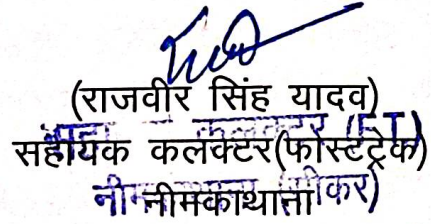 (राजवीर सिंह यादव)
सहायक कलक्टर(फास्टट्रेक)
नीमकाथाना